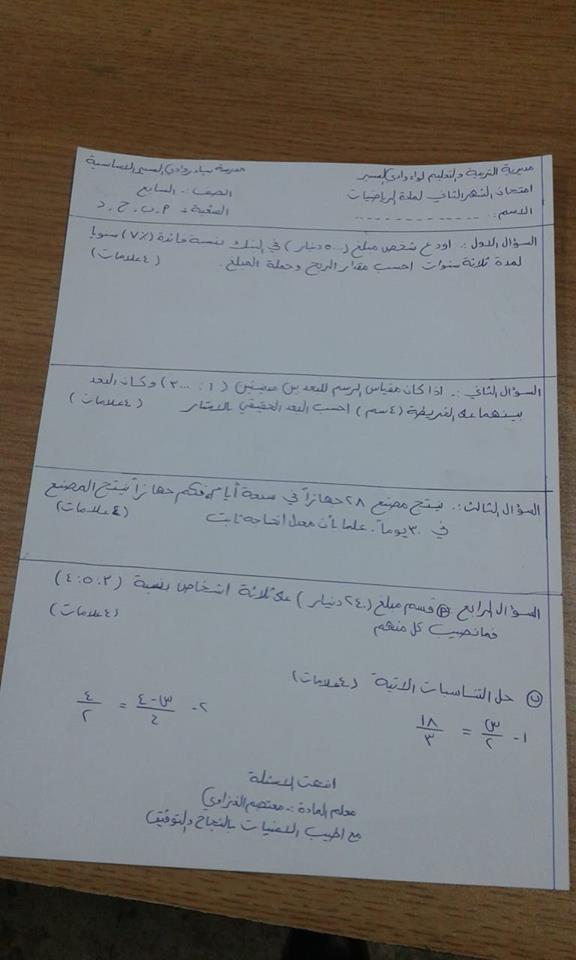 مديرية التربية والتعليم لواء وادي السير
مدرسة بيادر وادي السير الاساسية
امتحان الشهر الثاني لمادة الرياضيات
الصف :. السابع
الاسم: ------------
الشعبة: أ . ب . ج . د
السؤال الاول :. اودع شخص مبلغ (٥٠٠٠ دينار) في البنك بنسبة فائدة (٧٪) سنويا
لمدة ثلاثة سنوات احسب مقدار الربح وجملة المبلغ . (٤ علامات)
السؤال الثاني :. اذا كان مقياس الرسم للبعد بين مدينتين (١ : ٣٠٠٠) وكان البعد
بينهما على الخريطة (٤ سم) احسب البعد الحقيقي بالامتار (٤ علامات)
السؤال الثالث :. ينتج مصنع ٢٨ جهازاً في سبعة أيام فكم جهازاً ينتج المصنع
في ٣٠ يوماً. علماً بأن معدل انتاجه ثابت (٤ علامات)
السؤال الرابع أ قسم مبلغ (٢٤٠ دينار) على ثلاثة اشخاص بنسبة (٣ : ٥ : ٤)
فما نصيب كل منهم (٤ علامات)
ب حل التناسبات الاتية (٤ علامات)
١- س/٢ = ١٨/٣
٢- س-٤/٤ = ٤/٢
انتهت الاسئلة
معلم المادة :. معتصم الغزاوي
مع اطيب الامنيات بالنجاح والتوفيق